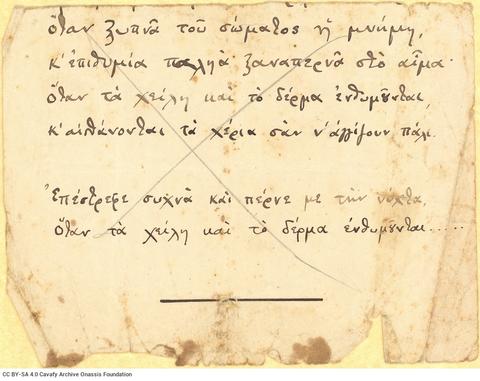 ὅταν ξυπνᾶ τοῦ σώματος ἡ μνήμη,
κ' ἐπιθυμία παληὰ ξαναπερνᾶ στὸ αἷμα·
ὅταν τὰ χείλη καὶ τὸ δέρμα ἐνθυμοῦνται,
κ' αἰσθάνονται τὰ χέρια σὰν ν' ἀγγίζουν πάλι.
Ἐπέστρεφε συχνὰ καὶ πέρνε με τὴν νύχτα,
ὅταν τὰ χείλη καὶ τὸ δέρμα ἐνθυμοῦνται.....
CC BY-SA 4.0 Cavafy Archive Onassis Foundation